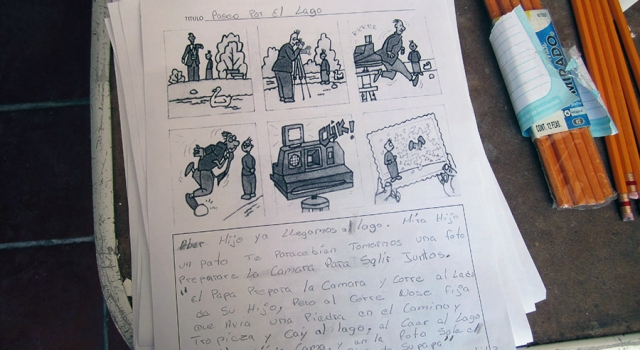 TITULO Paseo Por El Lago
CLIK!
Hijo ya llegamos al lago. Mira Hijo
un pato Te Parace bian Tomarnos una foto
Preparare la Camara Para Salir Juntos.
"El Papa Prepara la Camara y Corre al Lado
de su Hijo, Pero al Corre Nose fija
que Avia una Piedra en el Camino y
Tropieza y Cay al lago, al Caer al Lago
y en la Foto Sale el
MIRADO
CONT. 12 PZAS